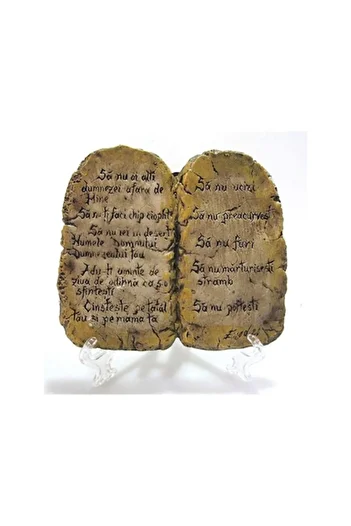 Să nu ai alți
dumnezei afara de
Mine
Să nu-ti faci chip cioplit
Să nu iei in desert
Numele Domnului
Dumnezeului tau
Adu-ti aminte de
ziua de odihnă ca s-o
sfintesti
Cinsteste pe tatal
tau si pe mama ta
Să nu ucizi
Să nu preacurvesti
Să nu furi
Să nu mărturisesti
stramb
Să nu poftesti